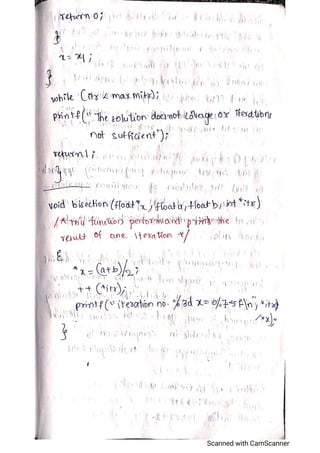 return 0;
}
x = x1;
}
while (itr < maxmitr);
printf(" The solution does not coverage or iterations
not sufficient");
return 1;
}
void bisection (float *x, float a, float b, int *itr)
/* This function performs and prints the
result of one iteration */
{
*x = (a+b)/2;
++ (*itr);
printf(" iteration no. %3d x= %7.5f\n", *itr,
*x);
}
Scanned with CamScanner